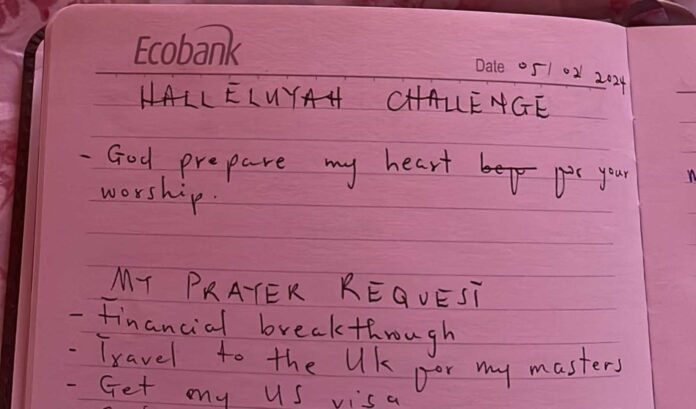 Ecobank
Date 05/02/2024
HALLELUYAH CHALLENGE
- God prepare my heart for your
worship.
MY PRAYER REQUEST
- Financial breakthrough
- Travel to the UK for my masters
- Get my US visa